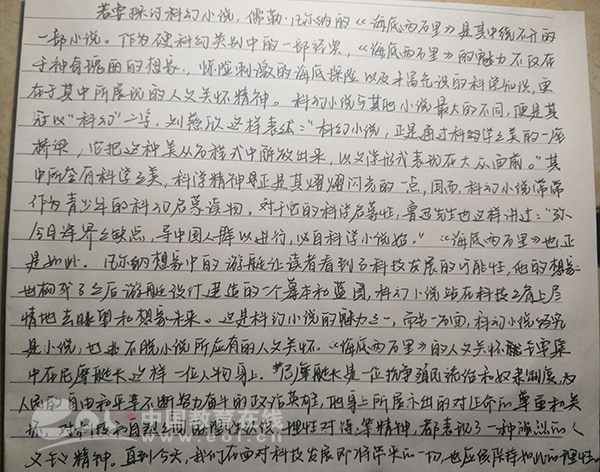 若要探讨科幻小说，儒勒·凡尔纳的《海底两万里》是其中绕不开的
一部小说。作为硬科幻类别中的一部记录，《海底两万里》的魅力不仅在
于神奇瑰丽的想象、惊险刺激的海底探险以及丰富充设的科学知识，更
在于其中所展现的人文关怀精神。科幻小说与其他小说最大的不同，便是其
冠以“科幻”二字，刘慈欣这样表述：“科幻小说，正是通过科学之美的一座
桥梁，它把这种美从方程式中解放出来，以文学形式表现在大众面前。”其
中所含有科学之美，科学精神等正是其熠熠闪光的一点，因而，科幻小说常常
作为青少年的科幻启蒙读物，对于它的科学启蒙性，鲁迅先生也这样讲过：“弥
今日译界之缺点，导中国人群以进行，必自科学小说始。”《海底两万里》也正
是如此。凡尔纳想象中的游艇让读者看到了科技发展的可能性，他的想象
也构成了之后游艇设计建造的一个基本和蓝图，科幻小说站在科技之肩上尽
情地去眺望和想象未来。这是科幻小说的魅力之一，而另一方面，科幻小说终究
是小说，也并不脱小说所应有的人文关怀。《海底两万里》的人文关怀都集
中在尼摩艇长这样一位人物身上。尼摩艇长是一位抗争殖民统治和奴隶制度，为
人民的自由和平等不断努力奋斗的政治英雄，他身上所展示出的对生命的尊重和关
怀、对科技和自然之间的理性、理性对待等精神，都表现了一种强烈的人
文主义精神。直到今天，我们在面对科技发展即将带来的一切，也应该保持如此的理性。
中国教育在线
www.eol.cn